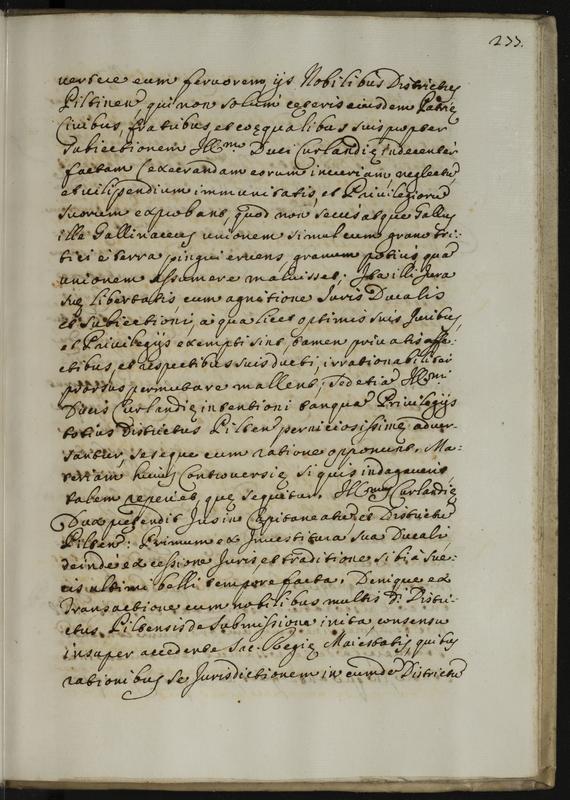 233.
vertere cum fervorem ijs Nobilibus Districtus
Piltinen qui non solum ceteris eiusdem Patrię
Civibus, fratribus, et coęqualibus suis propter
subiectionem Illmo Duci Curlandię indecenter
factam execrandam eorum incuriam, neglectũ
et vilipendium immunitatis, et Privilegiorũ
suorum exprobant, quod non secus atque Gallus
ille Gallinaceus unionem simul cum grano tri-
tici e terra pingui eruens, granum potius quã
unionem assumere maluisset; Ita illi Jura
suę libertatis cum agnitione Juris Ducalis
et subiectioni, a qua licet optimis suis Juribus,
et Privilegijs exempti sint, tamen privatis affe-
ctibus, et respectibus suis ducti, irrationabiliter
prorsus permutare mallent; sed etiã Illmi
Ducis Curlandię intentioni tanquã Privilegijs
totius Districtus Pilten perniciosissimę adver-
santur, seseque cum ratione opponunt. Ma-
teriam huius Controversię si quis indagaverit
talem reperiet, quę sequitur. Illmus Curlandię
Dux prętendit Jus in Capitaneatũ et Districtũ
Pilten: Primum ex Investitura sua Ducali,
deinde ex cessione Juris et traditione sibi à Sue-
cis ultimi belli tempore facta, Denique ex
Transactione cum nobilibus multis D. Distri-
ctus Piltensis de submissione inita, consensu
insuper accedente Sac. Regię Maiestatis, quibus
rationibus se Jurisdictionem in eumdẽ Districtũ